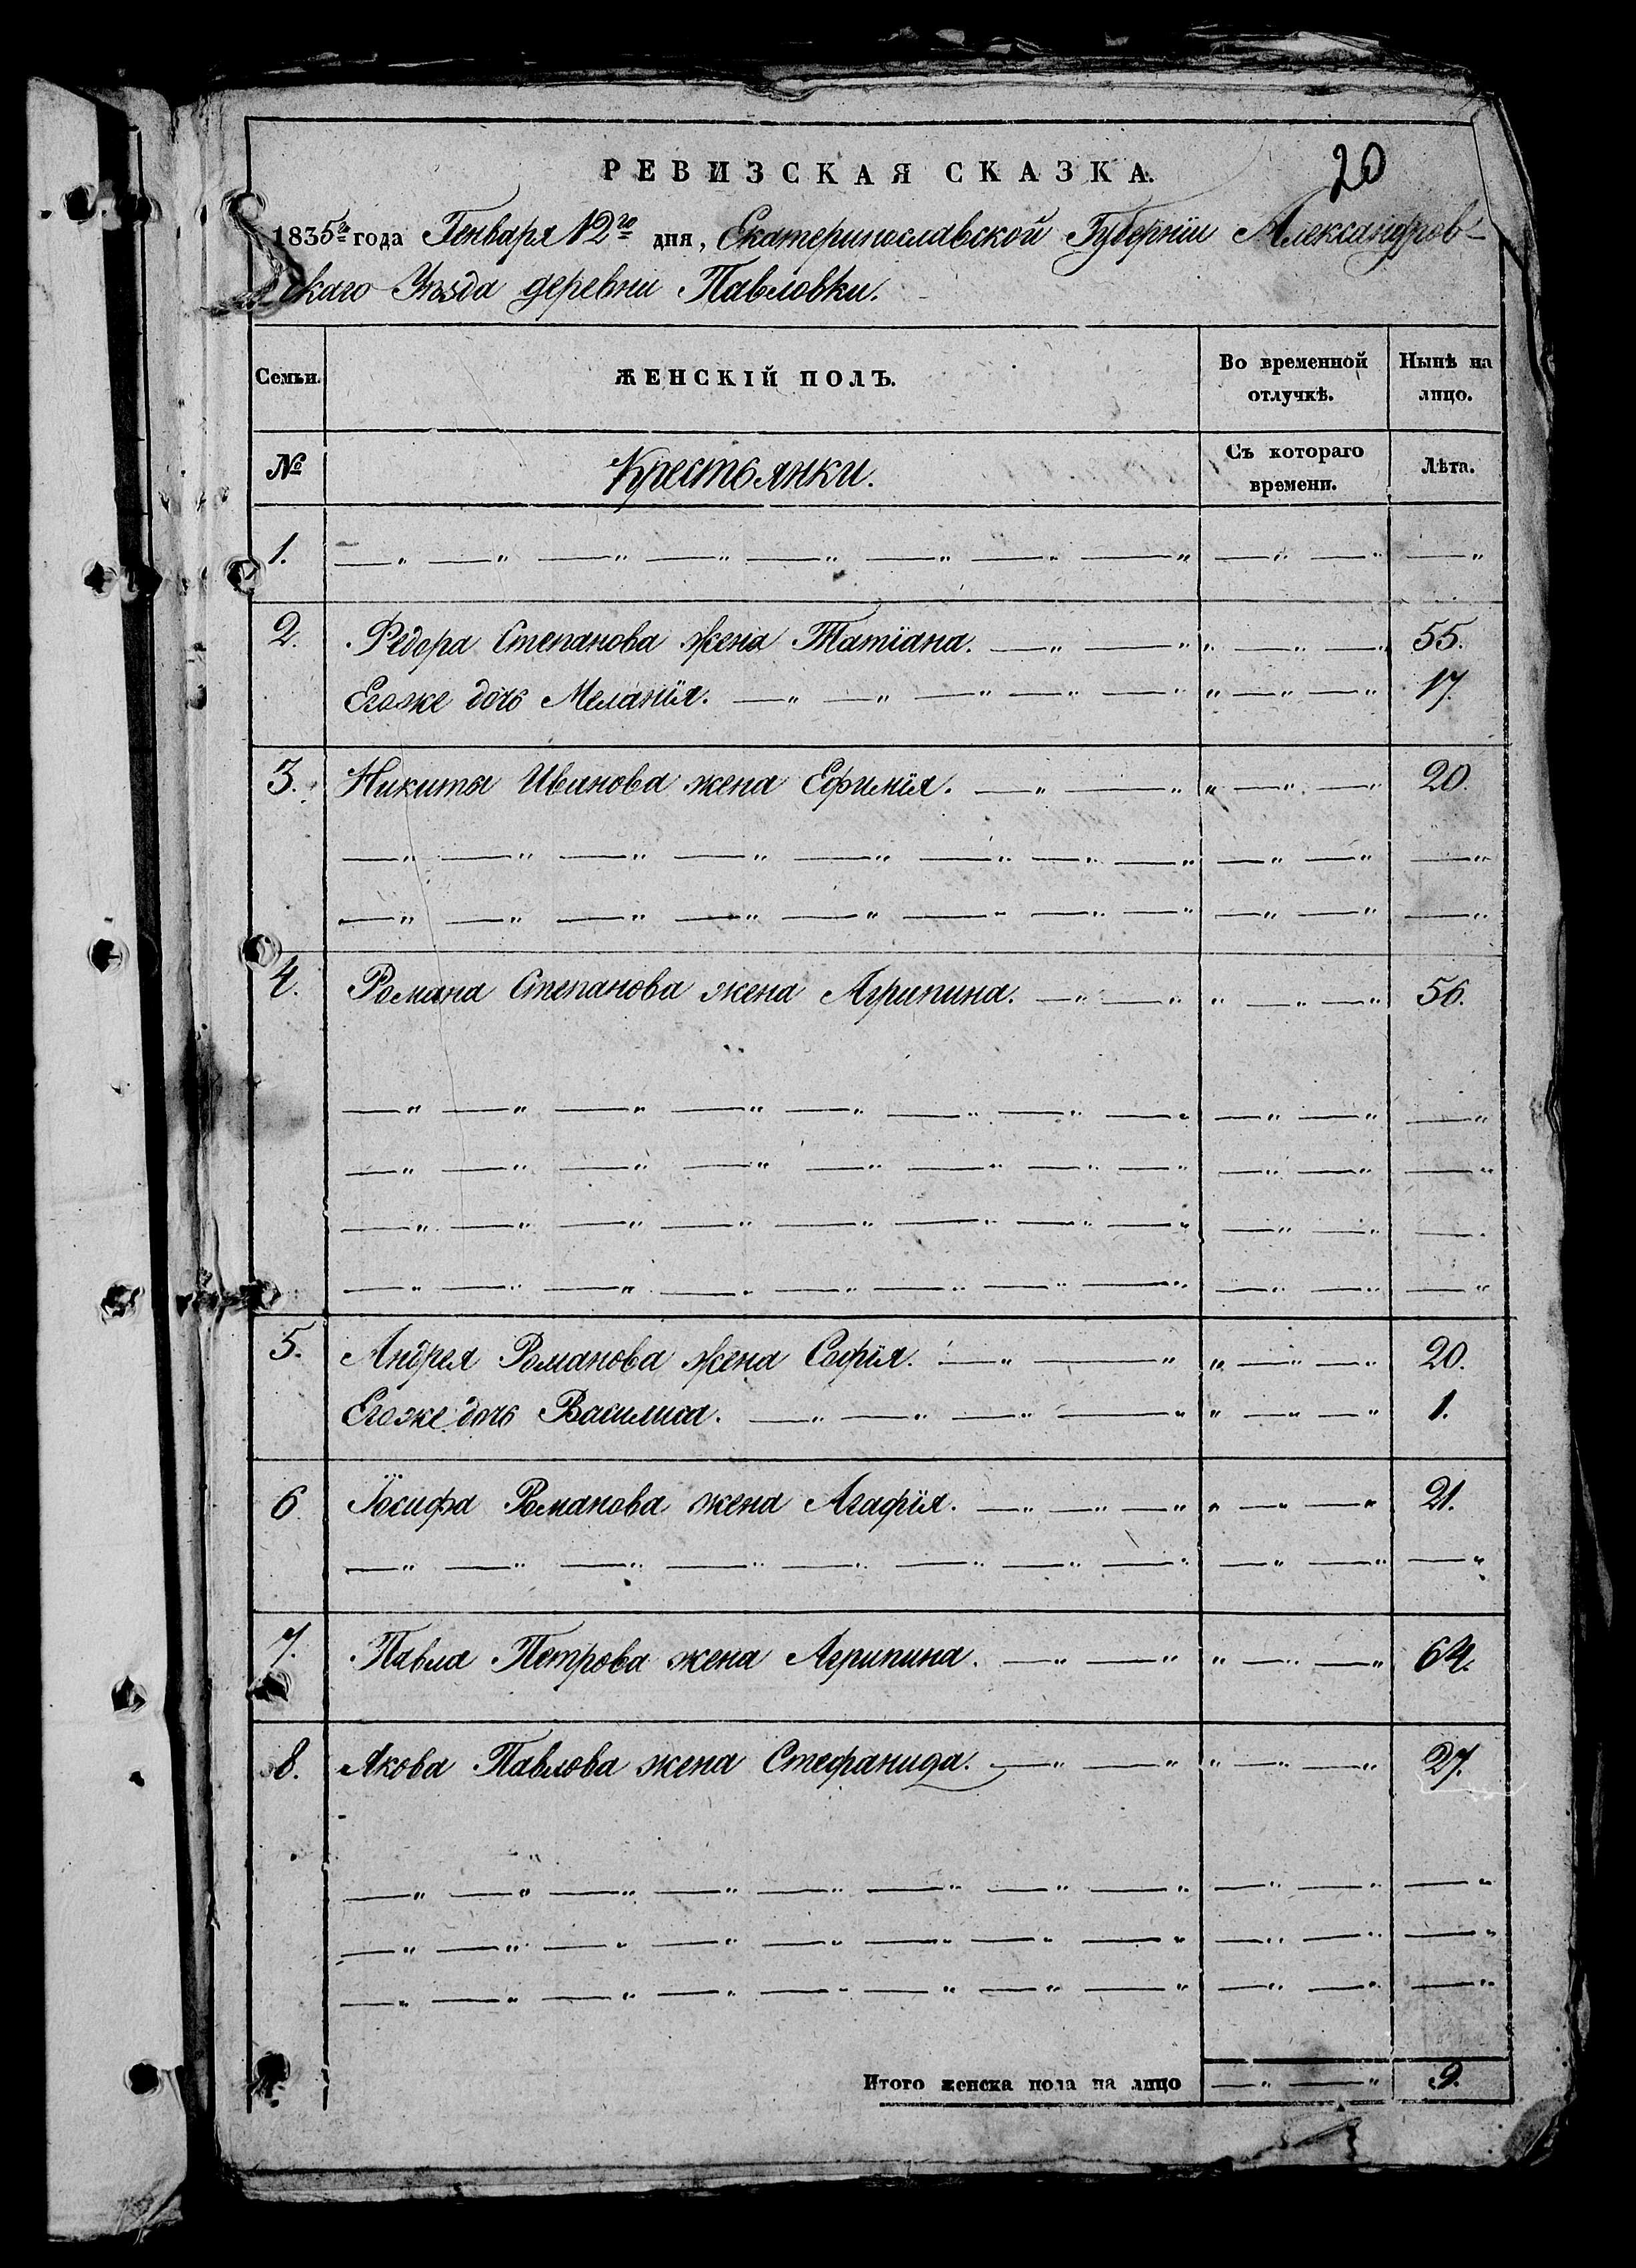 РЕВИЗСКАЯ СКАЗКА.
20
1835го года Генваря 12го дня, Екатеринославской Губернiи Александров-
скаго Уѣзда деревни Павловки.
Семьи. ЖЕНСКIЙ ПОЛЪ. Во временной отлучкѣ. Нынѣ на лицо.
№ Крестьянки. Съ котораго времени. Лѣта.
1.
2. Федора Степанова жена Татiана. 55.
Егоже дочь Меланiя. 17.
3. Никиты Иванова жена Ефимiя. 20.
4. Романа Степанова жена Агрипина. 56.
5. Андрея Романова жена Софiя. 20.
Егоже дочь Василиса. 1.
6. Iосифа Романова жена Агафiя. 21.
7. Павла Петрова жена Агрипина. 64.
8. Якова Павлова жена Стефанида. 27.
Итого женска пола на лицо 9.